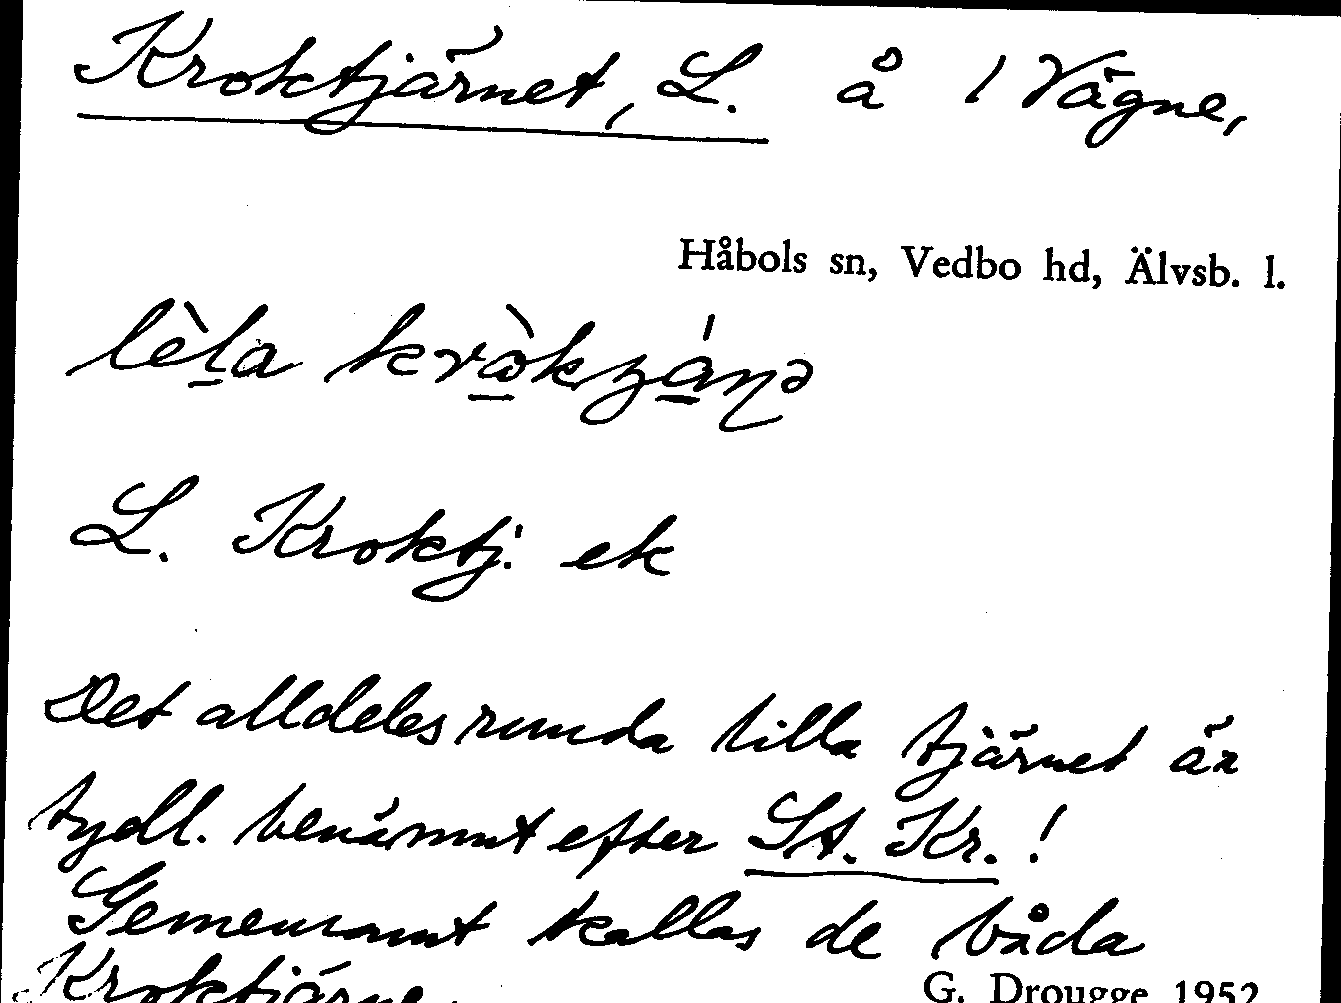 Kroktjärnet, L. å 1 Vägne,
Håbols sn, Vedbo hd, Älvsb. l.
lèḻa kvò̱kʒá̱ɳə
L. Kroktj. ek
Det alldeles runda lilla tjärnet är
tydl. benämnt efter St. Kr.!
Gemensamt kallas de båda
Kroktjärne.
G. Drougge 1952